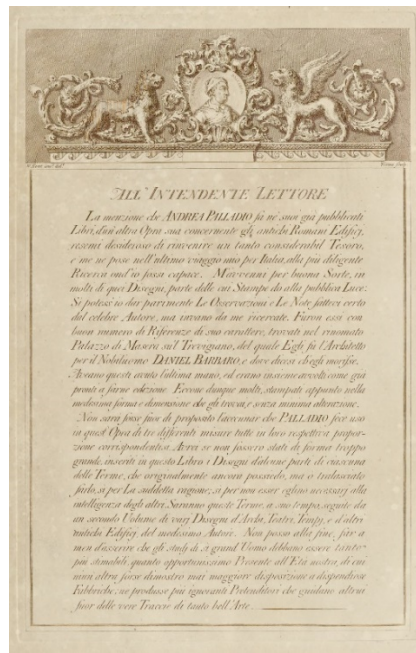 ALL' INTENDENTE LETTORE
La menzione che ANDREA PALLADIO fà ne' suoi già pubblicati
Libri, d'un' altra Opra sua concernente gli antichi Romani Edifizj,
resemi desideroso di rinvenire un tanto considerabil Tesoro,
e me ne pose nell'ultimo viaggio mio per Italia, alla più diligente
Ricerca ond'io fossi capace. M'avvenni per buona Sorte, in
molti di quei Disegni, parte delle cui Stampe do alla pubblica Luce:
Si potessi io dar parimente Le Osservazioni e Le Note fattevi certo
dal celebre Autore, ma invano da me ricercate. Furon essi con
buon numero di Riferenze di suo carattere, trovati nel rinomato
Palazzo di Masera sul Trevigiano, del quale Egli fù l'Architetto
per il Nobiluomo DANIEL BARBARO, e dove dicesi ch'egli morisse.
Aveano questi avuto l'ultima mano, ed erano insieme avvolti come già
pronti a farne edizione. Eccone dunque molti, stampati appunto nella
medesima forma e dimensione che gli trovai, e senza minima alterazione.
Non sarà forse fuor di proposito l'accennar che PALLADIO fece uso
in quest' Opra di tre differenti misure tutte in loro respettiva propor-
zione corrispondentisi. Avrei se non fossero stati di forma troppo
grande, inseriti in questo Libro i Disegni d'alcune parti di ciascuna
delle Terme, che originalmente ancora possiedo, ma ò tralasciato
farlo, sì per La suddetta ragione; sì per non esser eglino necessarj alla
intelligenza degli altri. Saranno queste Terme, a suo tempo, seguite da
un secondo Volume di varj Disegni d'Archi, Teatri, Tempj, e d'altri
antichi Edifizj, del medesimo Autore. Non posso alla fine, far a
men d'asserire che gli studj di sì grand' Uomo debbano essere tanto
più stimabili, quanto opportunissimo Presente all' Età nostra, di cui
niun altra forse dimostrò mai maggiore disposizione a dispendiose
Fabbriche; ne produsse più ignoranti Pretenditori che guidano altrui
fuor delle vere Traccie di tanto bell' Arte.